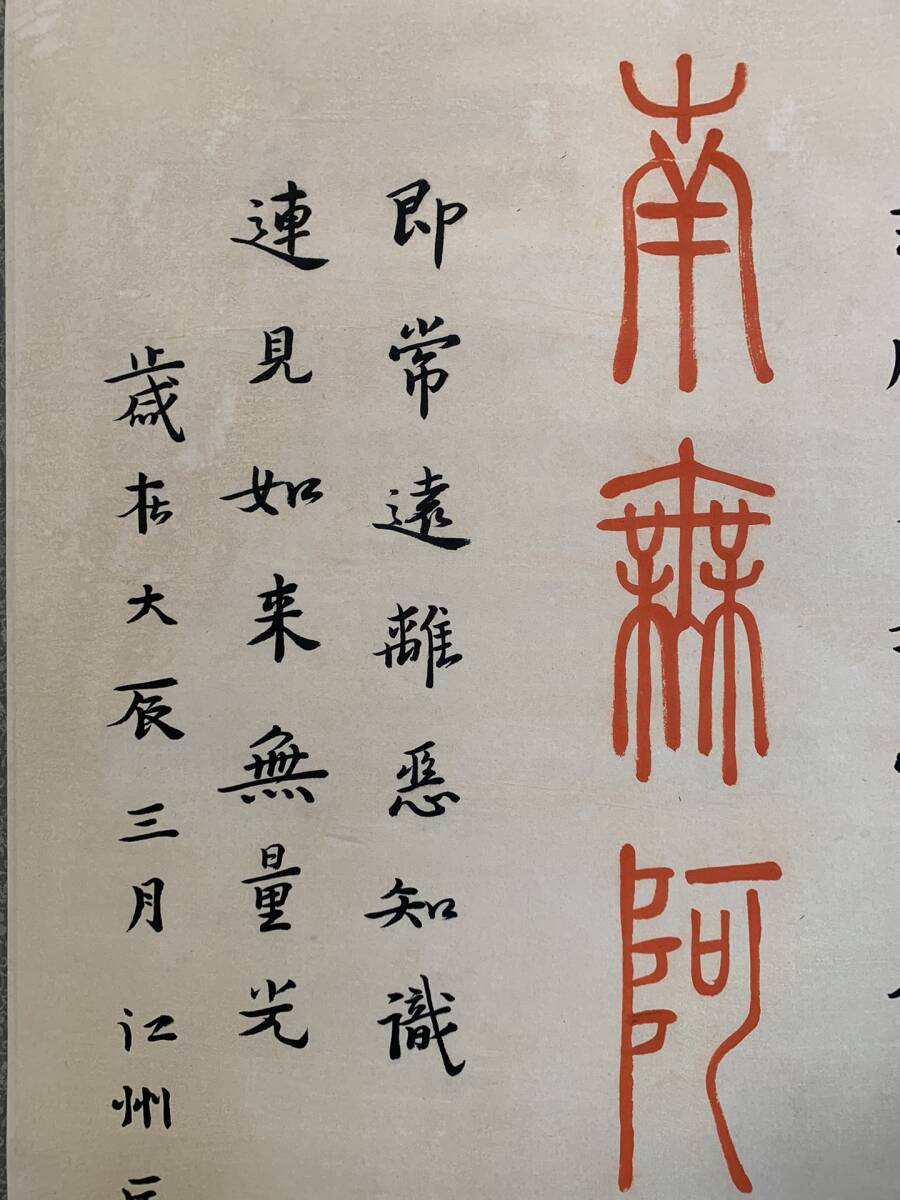 南無阿
即常遠離惡知識
連見如来無量光
歲在大辰三月江州